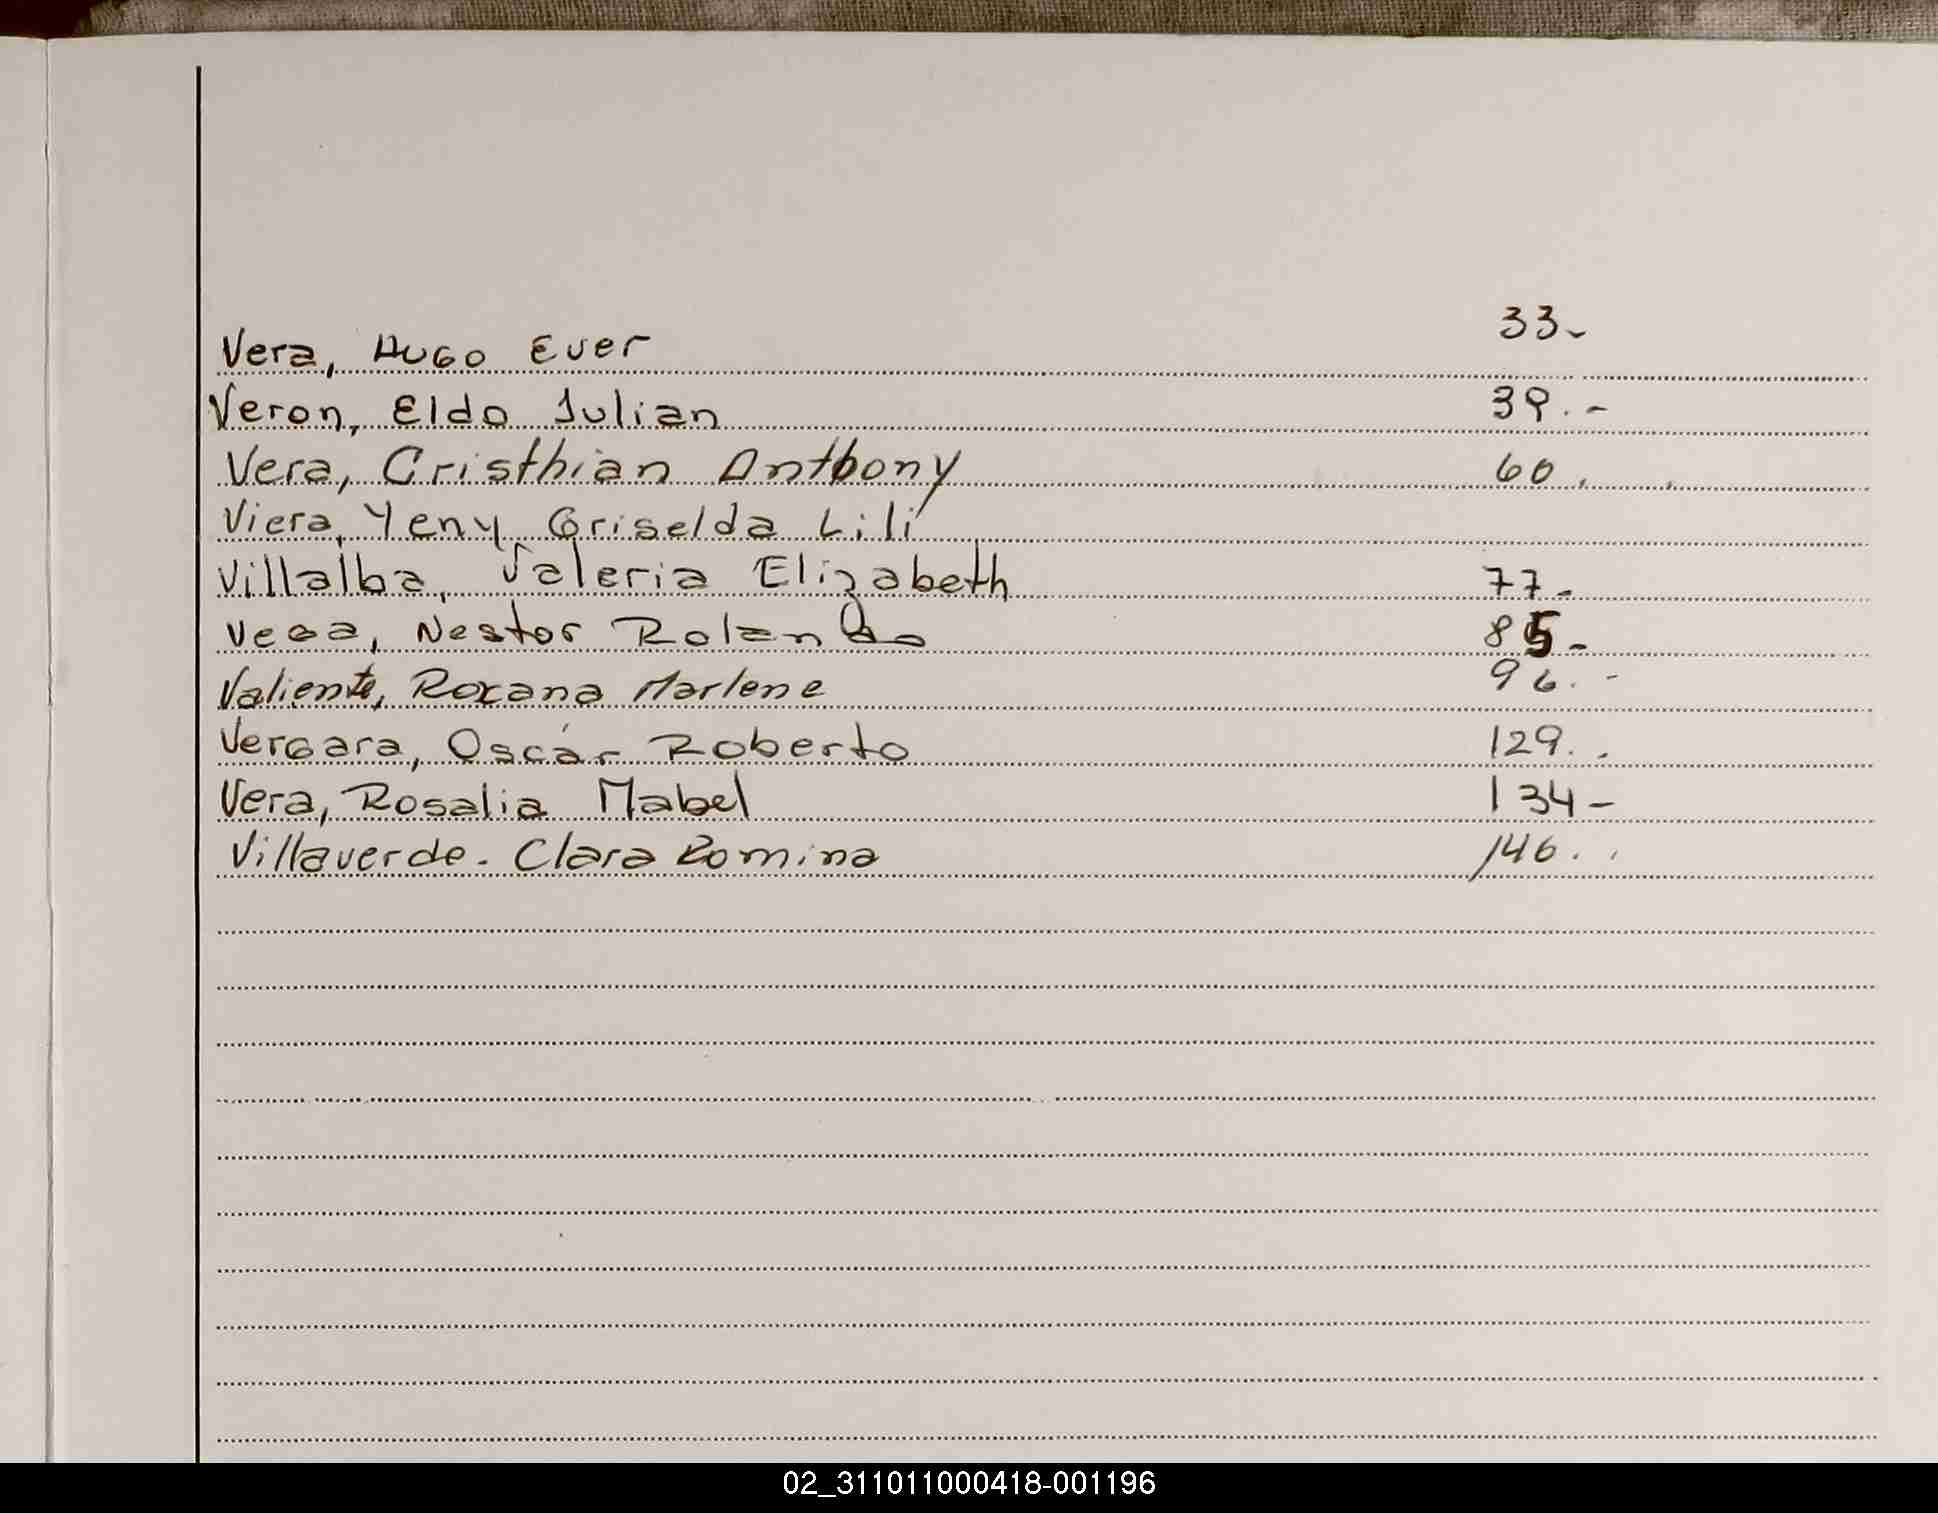 Vera, Hugo Ever 33-
Veron, Eldo Julian 39.-
Vera, Cristhian Anthony 60.
Viera, Yeny Griselda Lili
Villalba, Valeria Elizabeth 77-
Vega, Nestor Rolando 85-
Valiente, Roxana Marlene 96.-
Vergara, Oscár Roberto 129..
Vera, Rosalia Mabel 134-
Villaverde. Clara Romina 146..
02_311011000418-001196